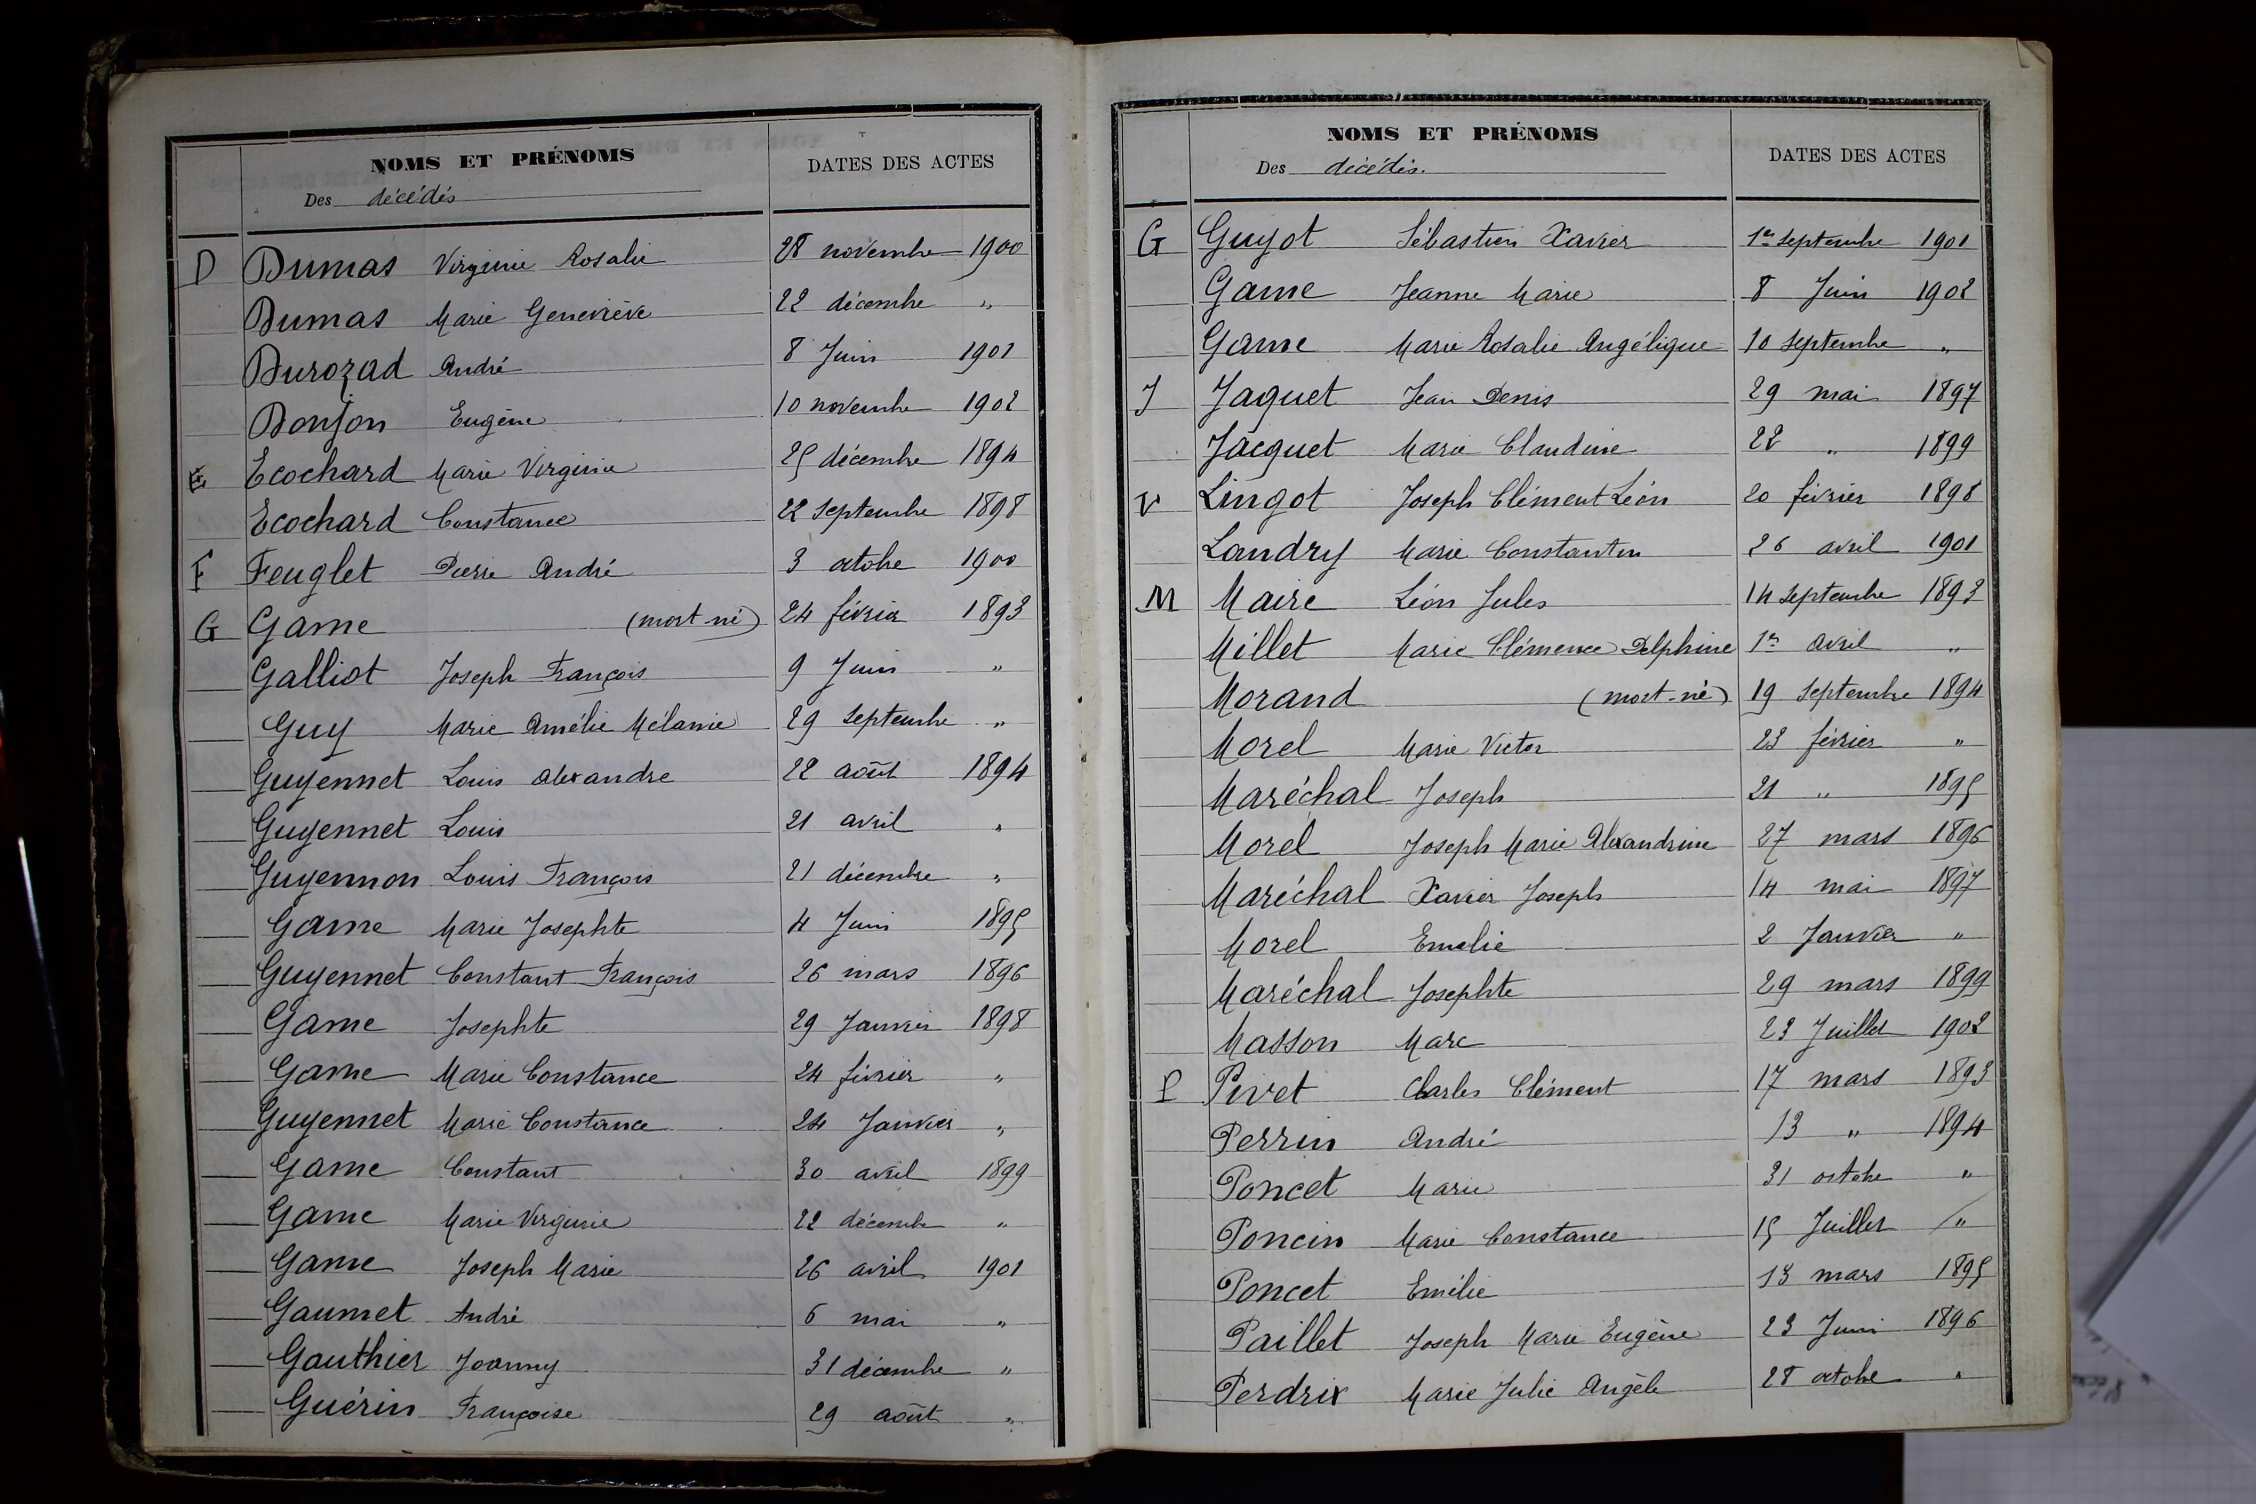 NOMS ET PRÉNOMS
Des décédés
DATES DES ACTES
D Dumas Virginie Rosalie 28 novembre 1900
Dumas Marie Geneviève 22 décembre "
Durozad André 8 Juin 1901
Donjon Eugène 10 novembre 1902
E Ecochard Marie Virginie 25 décembre 1894
Ecochard Constance 22 septembre 1898
F Feuglet Pierre André 3 octobre 1900
G Game (mort-né) 24 février 1893
Galliot Joseph François 9 Juin "
Guy Marie Amélie Mélanie 29 septembre "
Guyennet Louis Alexandre 22 août 1894
Guyennet Louis 21 avril "
Guyennon Louis François 21 décembre "
Game Marie Josephte 4 Juin 1895
Guyennet Constant François 26 mars 1896
Game Josephte 29 Janvier 1898
Game Marie Constance 24 février "
Guyennet Marie Constance 24 Janvier "
Game Constant 30 avril 1899
Game Marie Virginie 22 décembre "
Game Joseph Marie 26 avril 1901
Gaumet André 6 mai "
Gauthier Joanny 31 décembre "
Guérin Françoise 29 août "
NOMS ET PRÉNOMS
Des décédés.
DATES DES ACTES
G Guyot Sébastien Xavier 1er septembre 1901
Game Jeanne Marie 8 Juin 1902
Game Marie Rosalie Angélique 10 septembre "
J Jaquet Jean Denis 29 mai 1897
Jacquet Marie Claudine 22 " 1899
L Lingot Joseph Clément Léon 20 février 1898
Landry Marie Constantin 26 avril 1901
M Maire Léon Jules 14 septembre 1893
Millet Marie Clémence Delphine 1er avril "
Morand (mort-né) 19 septembre 1894
Morel Marie Victor 23 février "
Maréchal Joseph 21 " 1895
Morel Joseph Marie Alexandrine 27 mars 1896
Maréchal Xavier Joseph 14 mai 1897
Morel Emelie 2 Janvier "
Maréchal Josephte 29 mars 1899
Masson Marc 23 Juillet 1902
P Pivet Charles Clément 17 mars 1893
Perrin André 13 " 1894
Poncet Marie 31 octobre "
Poncin Marie Constance 15 Juillet "
Poncet Emélie 13 mars 1895
Paillet Joseph Marie Eugène 23 Juin 1896
Perdrix Marie Julie Angèle 28 octobre "